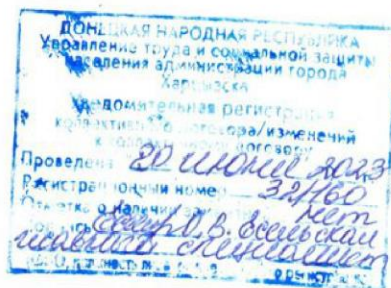 ДОНЕЦКАЯ НАРОДНАЯ РЕСПУБЛИКА
Управление труда и социальной защиты
населения администрации города
Харцызска
Уведомительная регистрация
коллективного договора/изменений
к коллективному договору
Проведена 20 июня 2023
Регистрационный номер 32/160
Отметка о наличии нет
В. Есельская
главный специалист